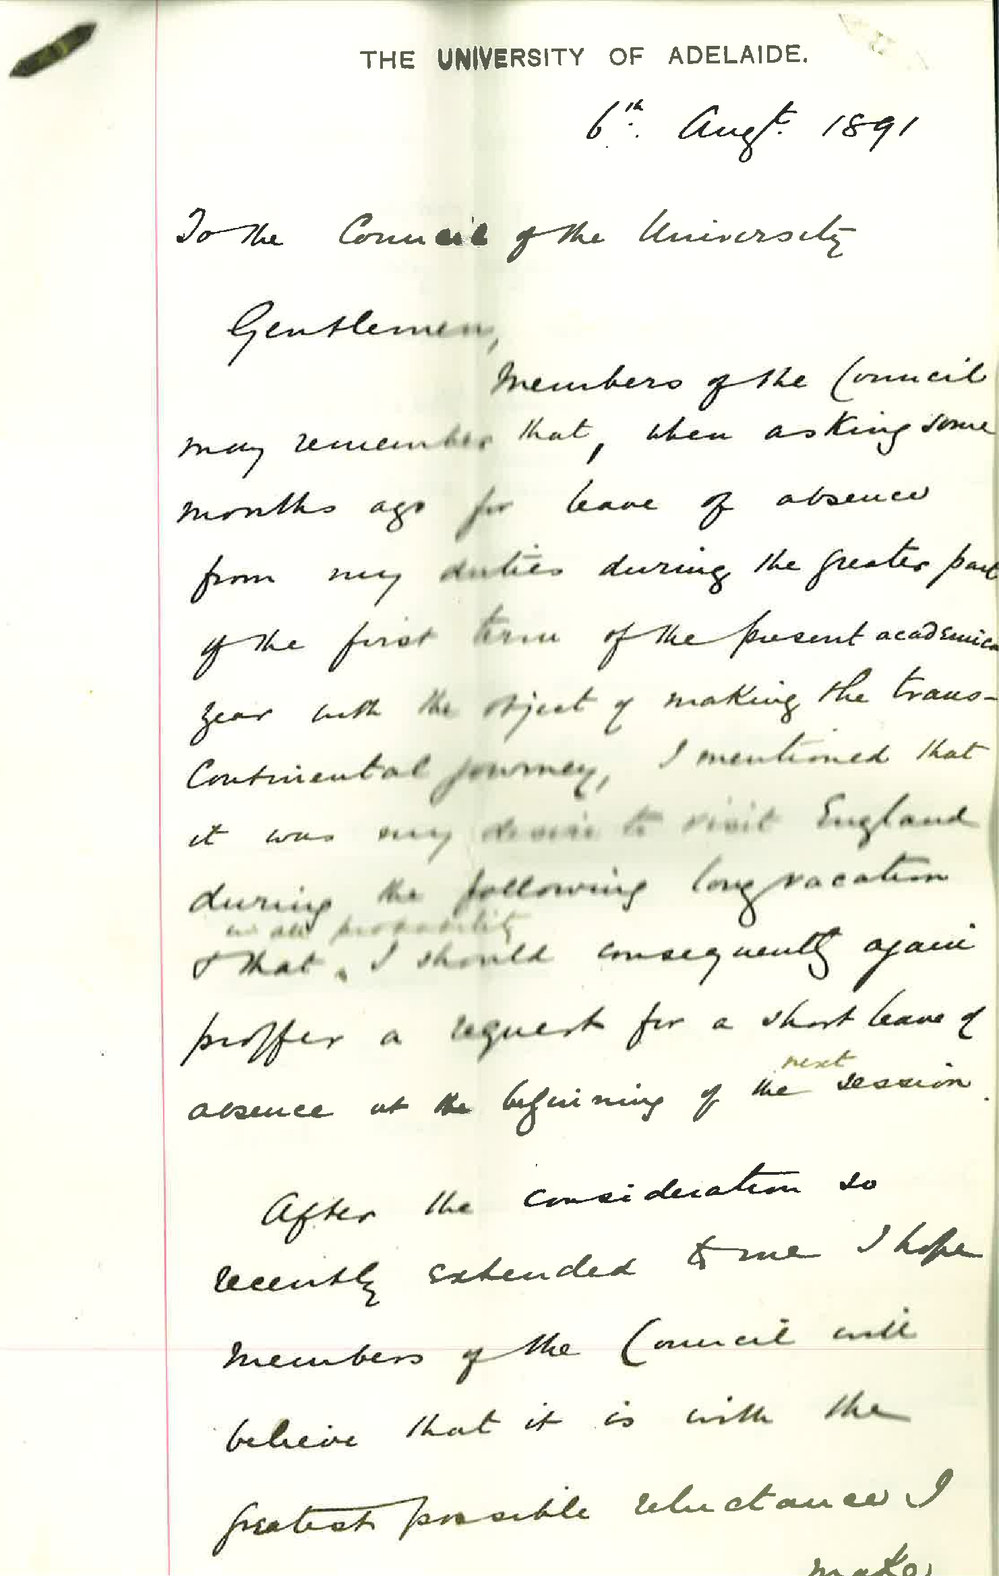 THE UNIVERSITY OF ADELAIDE.
6th. Augt. 1891
To the Council of the University
Gentlemen,
Members of the Council
may remember that, when asking some
months ago for leave of absence
from my duties during the greater part
of the first term of the present academical
year with the object of making the trans-
Continental journey, I mentioned that
it was my desire to visit England
during the following long vacation
in all probability
& that ‸ I should consequently again
proffer a request for a short leave of
next
absence at the beginning of the session.
After the consideration so
recently extended to me I hope
Members of the Council will
believe that it is with the
greatest possible reluctance I
make